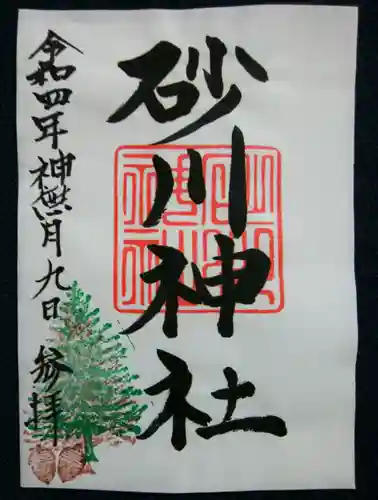 砂川神社
令和四年神無月九日 参拝